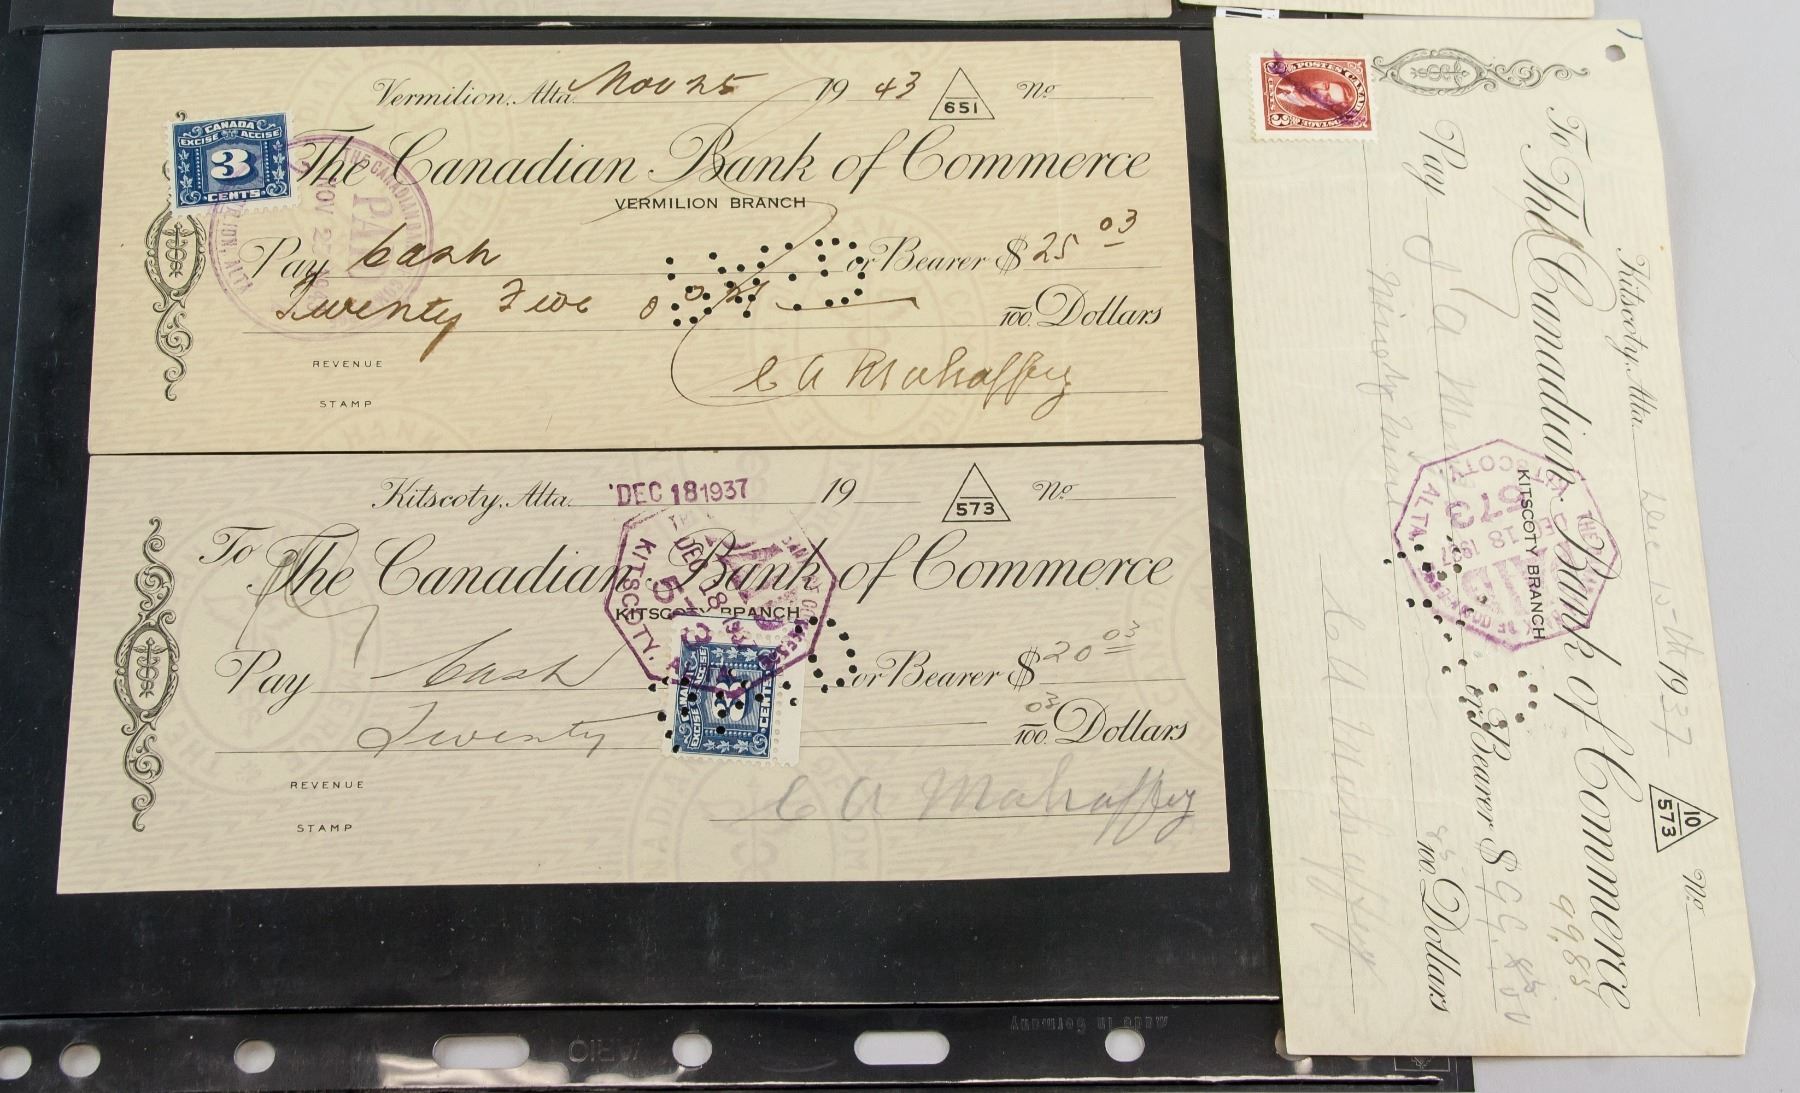 Vermilion, Alta. Nov 25 19 43 651 No
CANADA
EXCISE ACCISE
3
CENTS
The Canadian Bank of Commerce
VERMILION BRANCH
PAID
NOV 25
Pay Cash or Bearer $ 25 03
Twenty Five 03/100 Dollars
REVENUE
STAMP
C A Mahaffey
Kitscoty, Alta. DEC 18 1937 19 573 No
To The Canadian Bank of Commerce
KITSCOTY BRANCH
DEC 18
KITSCOTY, ALTA
Pay Cash or Bearer $ 20 03
Twenty 03/100 Dollars
CANADA
EXCISE ACCISE
3
CENTS
REVENUE
STAMP
C A Mahaffey
made in Germany
VARIO
POSTES CANADA
3 CENTS POSTAGE 3
Kitscoty, Alta. Dec 15th 1937 10 573 No
To The Canadian Bank of Commerce
KITSCOTY BRANCH
573
18 1937
KITSCOTY ALTA
99.85
Pay or Bearer $
Ninety Nine 100 Dollars
C A Mahaffey